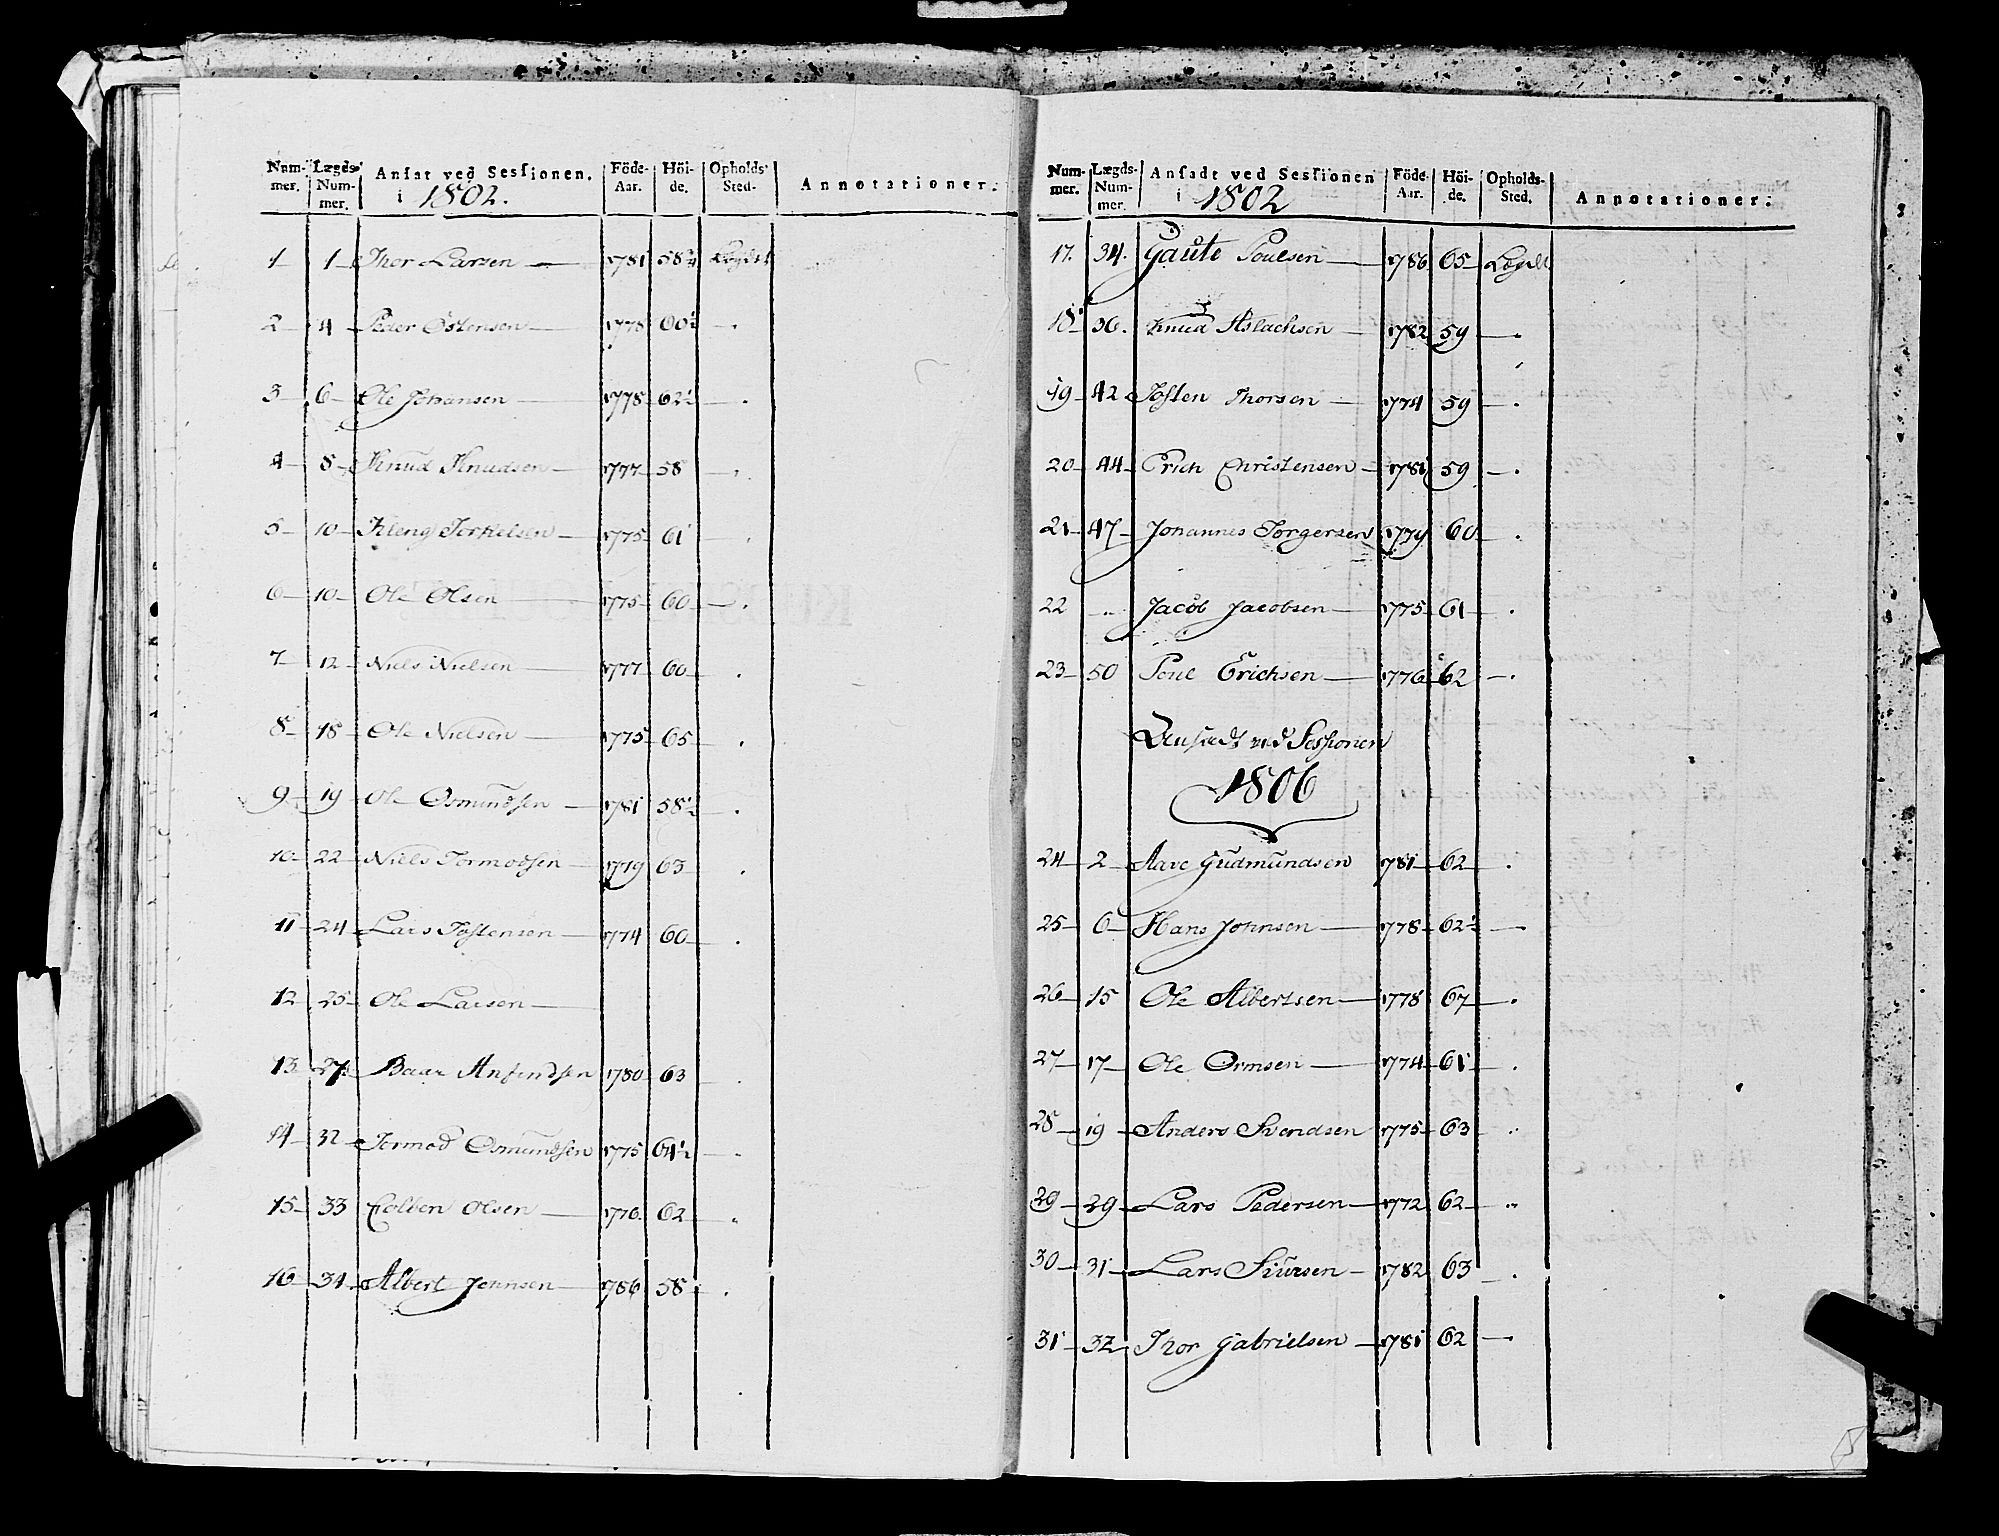 Num- mer. Lægds- Num- mer. Ansat ved Sessionen. i 1802. Föde- Aar. Höi- de. Opholds Sted. Annotationer.
1 1 Thor Larsen 1781 58½ Lægdet
2 4 Peder Östensen 1778 60½ .
3 6 Ole Johansen 1778 62½ .
4 8 Knud Knudsen 1777 58 .
5 10 Kleng Torkelsen 1775 61 .
6 10 Ole Olsen 1775 60 .
7 12 Niels Nielsen 1777 60 .
8 18 Ole Nielsen 1775 65 .
9 19 Ole Osmundsen 1781 58½ .
10 22 Niels Tormodsen 1779 63 .
11 24 Lars Tostensen 1774 60 .
12 25 Ole Larsen
13 27 Baar Anfindsen 1780 63 .
14 32 Tormod Osmundsen 1775 64½ .
15 33 Colben Olsen 1776 62 "
16 34 Albert Johnsen 1786 58 .
Num- mer. Lægds- Num- mer. Ansadt ved Sessionen i 1802 Föde Aar. Höi- de. Opholds- Sted. Annotationer.
17. 34. Gaute Poulsen 1786 65 Lægdet
18 36. Knud Aslachsen 1782 59 .
19 42 Tosten Thorsen 1774 59 .
20 44 Erich Christensen 1781 59 .
21 47 Johannes Torgersen 1779 60 .
22 " Jacob Jacobsen 1775 61 .
23 50 Poul Erichsen 1776 62 .
Ansadt ved Sessionen
1806
24 2 Aave Gudmundsen 1781 62 .
25 6 Hans Johnsen 1778 62½
26 15 Ole Albertsen 1778 67 .
27 17 Ole Ormsen 1774 61 .
28 19 Anders Svendsen 1775 63 "
29 29 Lars Pedersen 1772 62 "
30 31 Lars Siursen 1782 63 .
31 32 Thor Gabrielsen 1781 62